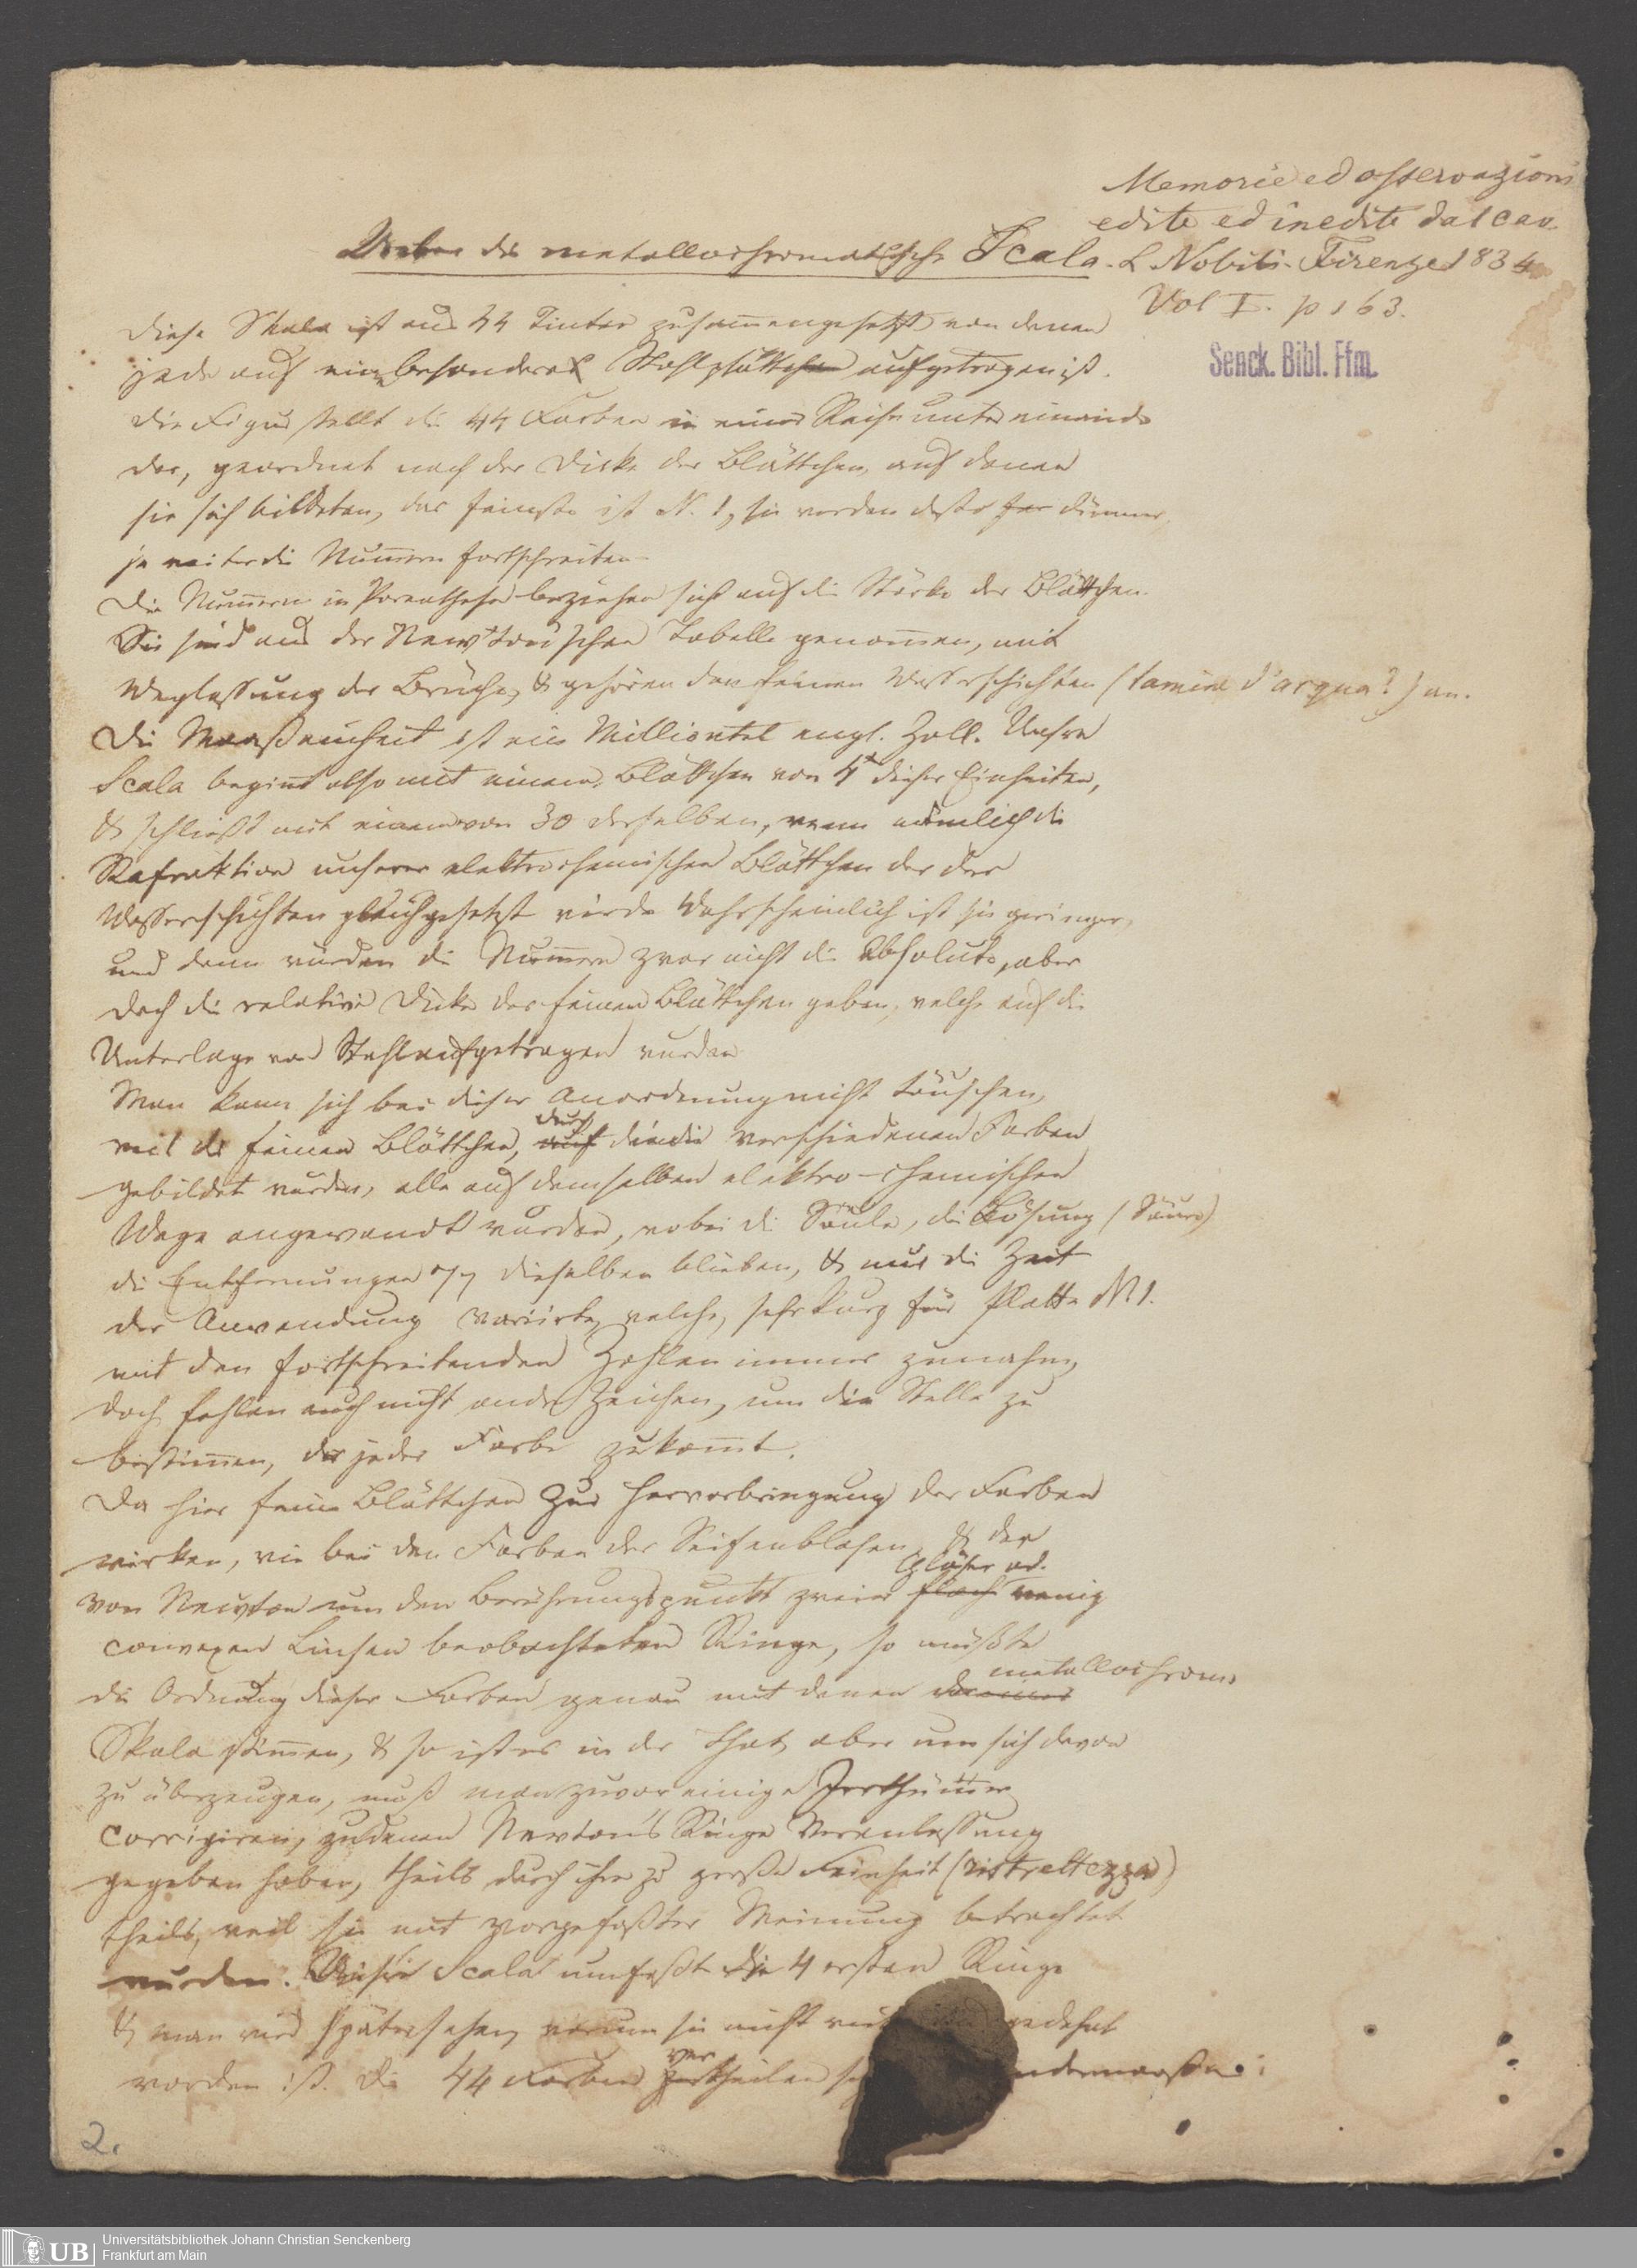 Memorie ed osservazioni
edite ed inedite dal cav.
L Nobili. Firenze 1834
Vol I. p 163.
Senck. Bibl. Ffm.
Ueber die metallochromatische Scala.
Diese Skala ist aus 44 Tinten zusam̅engesetzt von denen
jede auf ein besonderes Stahlplättchen aufgetragen ist.
Die Figur stellt die 44 Farben in einer Reihe unter einan
der, geordnet nach der Dicke der Blättchen, auf denen
sie sich bildeten, das feinste ist N. 1, sie werden desto dünner,
je weiter die Num̅ern fortschreiten
Die Num̅ern in Parenthese beziehen sich auf die Stärke der Blättchen.
Sie sind aus der Newton'schen Tabelle genom̅en, mit
Weglassung der Brüche, & gehören den feinen Wasserschichten (lamine d'acqua?) an.
Die Maaßeinheit ist ein Milliontel engl. Zoll. Unsre
Scala begin̅t also mit einem Blättchen von 4 dieser Einheiten,
& schließt mit einem von 30 derselben, wenn nämlich die
Refraktion unserer elektrochemischen Blättchen der der
Wasserschichten gleichgesetzt wird. Wahrscheinlich ist sie geringer,
und dann würden die Num̅ern zwar nicht die absolute, aber
doch die relative Dicke der feinen Blättchen geben, welche auf die
Unterlage von Stahl aufgetragen wurden
Man kann sich bei dieser Anordnung nicht täuschen,
weil die feinen Blättchen, auf durch die die verschiedenen Farben
gebildet wurden, alle auf demselben elektro-chemischen
Wege angewandt wurden, wobei die Säule, die Lösung (Säure)
die Entfernungen dieselben blieben, & nur die Zeit
der Anwendung variirte, welche, sehr kurz für Platte N. 1.
mit den fortschreitenden Zahlen immer zunahm,
doch fehlen auch nicht andre Zeichen, um die Stelle zu
bestim̅en, die jeder Farbe zukom̅t.
Da hier feine Blättchen zur Hervorbringung der Farben
wirken, wie bei den Farben der Seifenblasen, & der
von Newton um den Berührungspunkt zweier flach Gläser od. wenig
convexen Linsen beobachteten Ringe, so müßte
die Ordnung dieser Farben genau mit denen der metallochrom.
Skala stim̅en, & so ist es in der That, aber um sich davon
zu überzeugen, muß man zuvor einige Irrthüm̅er
corrigiren, zu denen Newton's Ringe Veranlassung
gegeben haben, theils durch ihre zu große Feinheit (ristrettezza)
theils, weil sie mit vorgefaßter Meinung betrachtet
wurden. Unsre Scala umfaßt die 4 ersten Ringe
& man wird später sehen, warum sie nicht gedehnt
worden ist. Die 44 Farben zer vertheilen
2.
UB Universitätsbibliothek Johann Christian Senckenberg
Frankfurt am Main